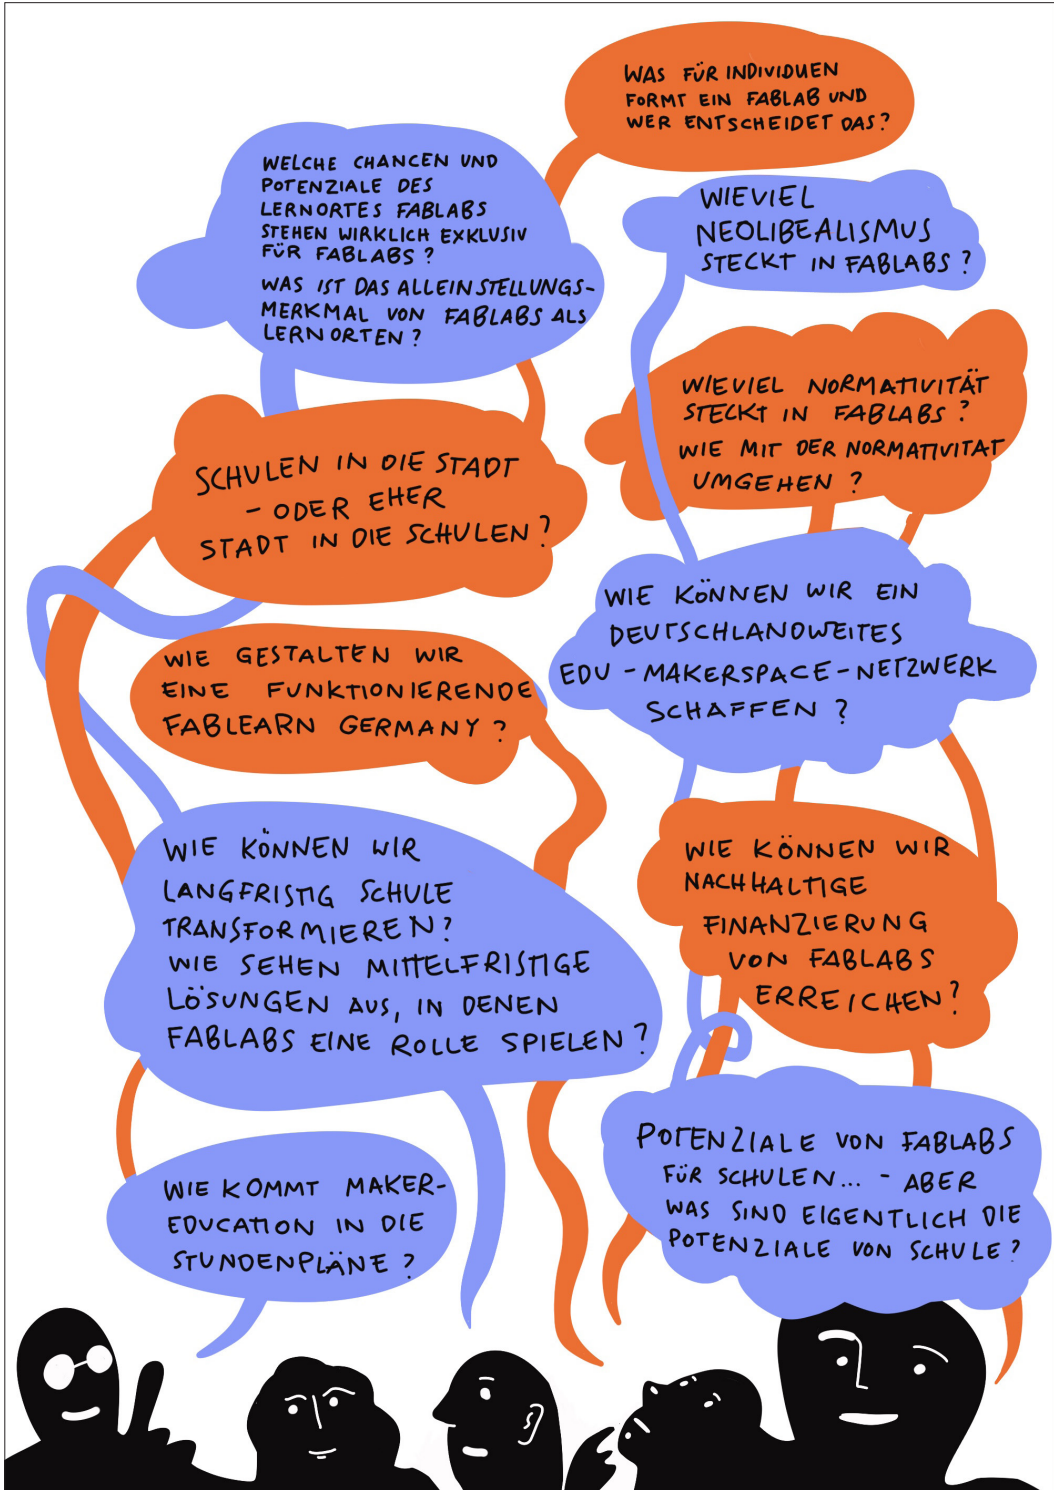 WAS FÜR INDIVIDUEN
FORMT EIN FABLAB UND
WER ENTSCHEIDET DAS?
WELCHE CHANCEN UND
POTENZIALE DES
LERNORTES FABLABS
STEHEN WIRKLICH EXKLUSIV
FÜR FABLABS?
WAS IST DAS ALLEINSTELLUNGS-
MERKMAL VON FABLABS ALS
LERNORTEN?
WIEVIEL
NEOLIBEALISMUS
STECKT IN FABLABS?
WIEVIEL NORMATIVITÄT
STECKT IN FABLABS?
WIE MIT DER NORMATIVITAT
UMGEHEN?
SCHULEN IN DIE STADT
- ODER EHER
STADT IN DIE SCHULEN?
WIE KÖNNEN WIR EIN
DEUTSCHLANDWEITES
EDU-MAKERSPACE-NETZWERK
SCHAFFEN?
WIE GESTALTEN WIR
EINE FUNKTIONIERENDE
FABLEARN GERMANY?
WIE KÖNNEN WIR
LANGFRISTIG SCHULE
TRANSFORMIEREN?
WIE SEHEN MITTELFRISTIGE
LÖSUNGEN AUS, IN DENEN
FABLABS EINE ROLLE SPIELEN?
WIE KÖNNEN WIR
NACHHALTIGE
FINANZIERUNG
VON FABLABS
ERREICHEN?
WIE KOMMT MAKER-
EDUCATION IN DIE
STUNDENPLÄNE?
POTENZIALE VON FABLABS
FÜR SCHULEN... - ABER
WAS SIND EIGENTLICH DIE
POTENZIALE VON SCHULE?